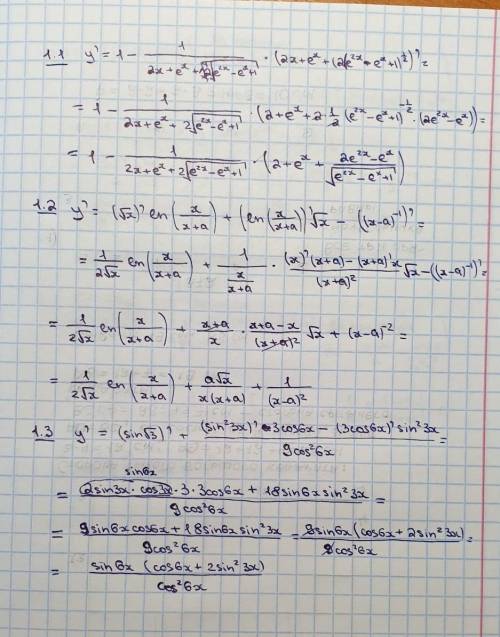 1.1 y' = 1 - 1/(2x+eˣ+2√(e²ˣ-eˣ+1)) · (2x+eˣ+(2(e²ˣ-eˣ+1)^(1/2))' =
= 1 - 1/(2x+eˣ+2√(e²ˣ-eˣ+1)) · (2+eˣ+2·1/2(e²ˣ-eˣ+1)^(-1/2)·(2e²ˣ-eˣ)) =
= 1 - 1/(2x+eˣ+2√(e²ˣ-eˣ+1)) · (2+eˣ+(2e²ˣ-eˣ)/√(e²ˣ-eˣ+1))
1.2 y' = (√x)' en(x/(x+a)) + (en(x/(x+a)))'√x - ((x-a)⁻¹)' =
= 1/(2√x) en(x/(x+a)) + 1/(x/(x+a)) · ((x)'(x+a)-(x+a)'x)/(x+a)² √x - ((x-a)⁻¹)' =
= 1/(2√x) en(x/(x+a)) + (x+a)/x · (x+a-x)/(x+a)² √x + (x-a)⁻² =
= 1/(2√x) en(x/(x+a)) + a√x/(x(x+a)) + 1/(x-a)²
1.3 y' = (sin√3)' + ((sin²3x)'·3cos6x - (3cos6x)'sin²3x)/(9cos²6x) =
sin6x
= (2sin3x·cos3x·3·3cos6x + 18sin6x sin²3x)/(9cos²6x) =
= (9sin6x cos6x + 18sin6x sin²3x)/(9cos²6x) = 9sin6x(cos6x + 2sin²3x)/(9cos²6x) =
= sin6x (cos6x + 2sin²3x)/(cos²6x)